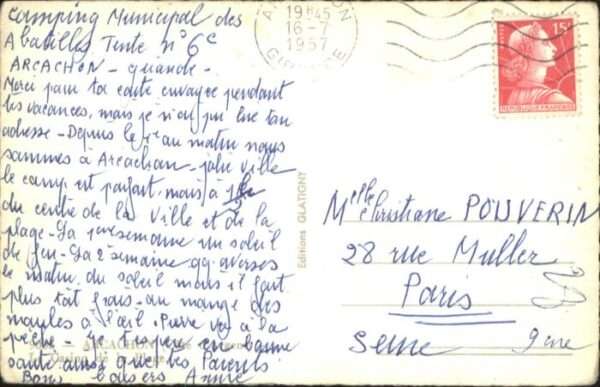 Camping Municipal des
Abatilles Tente n° 6C
ARCACHON - gironde -
Merci pour ta carte envoyée pendant
les vacances, mais je n'ai pu lire ton
adresse - Depuis le 1er au matin nous
sommes à Arcachon - jolie ville
le camp est parfait, mais à
du centre de la ville et de la
plage - La 1ère semaine un soleil
de feu - La 2e semaine qq. averses
le matin, du soleil mais il fait
plus tôt frais - on mange des
moules à l'œil. Pierre va à la
pêche - Je t'espère en bonne
santé ainsi que tes Parents
Bons baisers Annie
Editions GLATIGNY
ARCACHON
19H45
16-7
1957
GIRONDE
15F
REPUBLIQUE FRANÇAISE
Melle Christiane POISVERIN
28 rue Muller
Paris
Seine 9ème